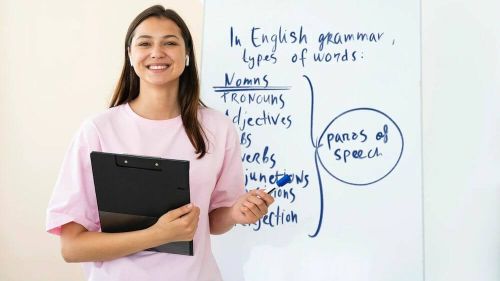 In English grammar,
types of words:
Nomns
PRONOUNS
Adjectives
bs
verbs
junctions
itions
jection
paros of
speech